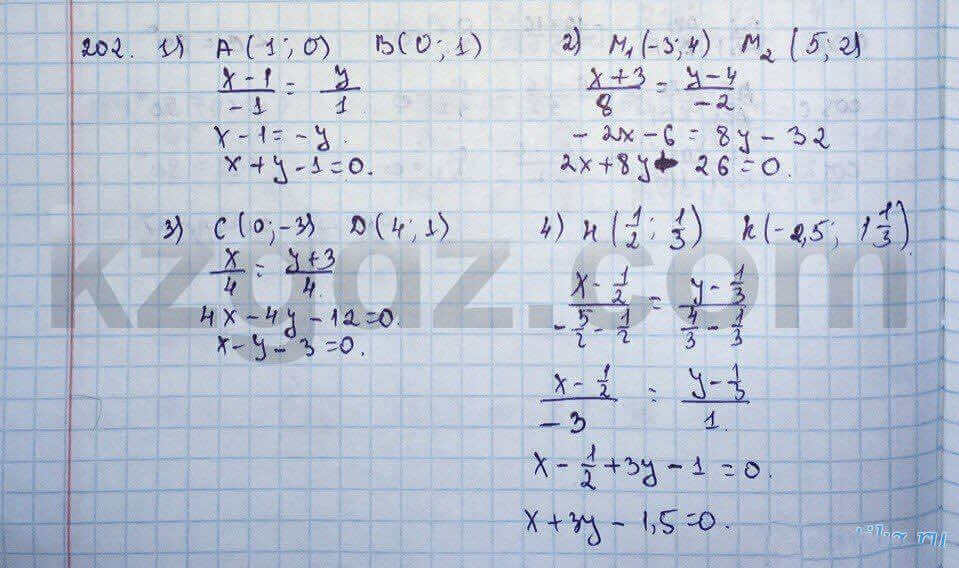 202. 1) A(1; 0) B(0; 1)
(x-1)/(-1) = y/1
x-1 = -y.
x+y-1=0.
2) M₁(-3; 4) M₂(5; 2)
(x+3)/8 = (y-4)/(-2)
-2x-6 = 8y-32
2x+8y - 26=0.
3) C(0; -3) D(4; 1)
x/4 = (y+3)/4.
4x-4y-12=0.
x-y-3=0.
4) H(1/2; 1/3) K(-2,5; 1 1/3).
(x-1/2)/(-5/2-1/2) = (y-1/3)/(4/3-1/3)
(x-1/2)/(-3) = (y-1/3)/1.
x-1/2+3y-1=0.
x+3y-1,5=0.
kzgdz.com